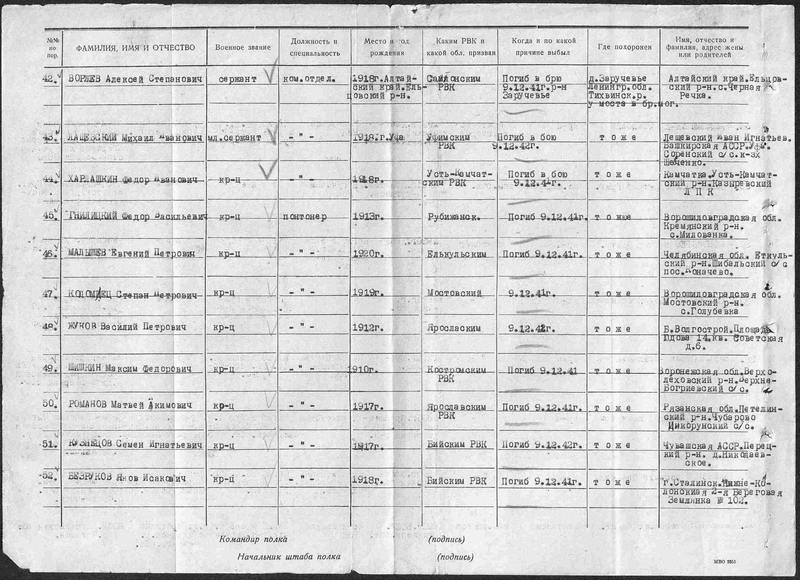 №№ по пор.
ФАМИЛИЯ, ИМЯ И ОТЧЕСТВО
Военное звание
Должность и специальность
Место и год рождения
Каким РВК и какой обл. призван
Когда и по какой причине выбыл
Где похоронен
Имя, отчество и фамилия, адрес жены или родителей
42. Алексей Степанович сержант ком.отдел. 1918г.Алтай- РВК Погиб в брю д.Заручевье Алтайский край.Ельцов-
ский край.Ель- 9.12.41г.р-н Ленингр.обл. ской р-н.с.Черная
цовский р-н. Заручевье Тихвинск.р. Речка.
у моста в бр.мог.
43. Михаил Иванович мл.сержант -"- 1918.г.Уфа Уфимским Погиб в бою т о ж е Лешевский Иван Игнатьев.
РВК 9.12.42г. Башкирская АССР.Уфи.
с/с.к-зх
44. ХАРЛАШКИН Федор Иванович кр-ц -"- 1918г. Усть-Камчат- Погиб в бою т о ж е Камчатка.Усть-Камчат-
ским РВК 9.12.41г. ский р-н.Казыревский
Л П К
45. ГНИЛИЦКИЙ Федор Васильевич кр-ц понтонер 1913г. Рубижанск. Погиб 9.12.41г. т о ж е Ворошиловградская обл.
Кремянский р-н.
с.Милованка.
46. МАЛЫШЕВ Евгений Петрович кр-ц -"- 1920г. Елькульским Погиб 9.12.41г. т о ж е Челябинская обл. Еткуль-
ский р-н.Шибальский с/с
47. Степан Петрович кр-ц -"- 1919г. Мостовский 9.12.41г. т о ж е Ворошиловградская обл.
Мостовский р-н.
с.Голубевка
48. ЖУКОВ Василий Петрович кр-ц -"- 1912г. Яросласким Погиб 9.12.41г. т о ж е Б.Волгострой.Площадь
14.кв. Советская
д.6.
49. ШИШКИН Максим Федорович кр-ц -"- 1910г. Костромским Погиб 9.12.41 т о ж е Воронежская обл.Верхо-
РВК леховский р-н.Верхне-
с/с.
50. РОМАНОВ Матвей Акимович кр-ц -"- 1917г. Ярославским Погиб 9.12.41г. т о ж е Рязанская обл.Петелин-
РВК ский р-н.Чубарово
с/с.
51. КУЗНЕЦОВ Семен Игнатьевич кр-ц -"- 1917г. Бийским РВК Погиб 9.12.42г. т о ж е Чувашская АССР.Перец-
кий р-н. д.Николаев-
ское.
52. БЕЗРУКОВ Яков Исакович кр-ц -"- 1918г. Бийским РВК Погиб 9.12.41г. т о ж е г.Сталинск.Нижне-Ко-
лонская 2-я Береговая
Землянка № 102.
Командир полка (подпись)
Начальник штаба полка (подпись)